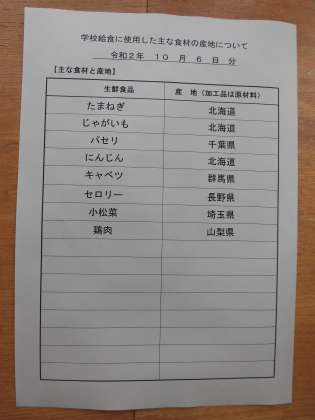 学校給食に使用した主な食材の産地について
令和2年 10 月 6 日 分
【主な食材と産地】
生鮮食品 産 地（加工品は原材料）
たまねぎ 北海道
じゃがいも 北海道
パセリ 千葉県
にんじん 北海道
キャベツ 群馬県
セロリー 長野県
小松菜 埼玉県
鶏肉 山梨県